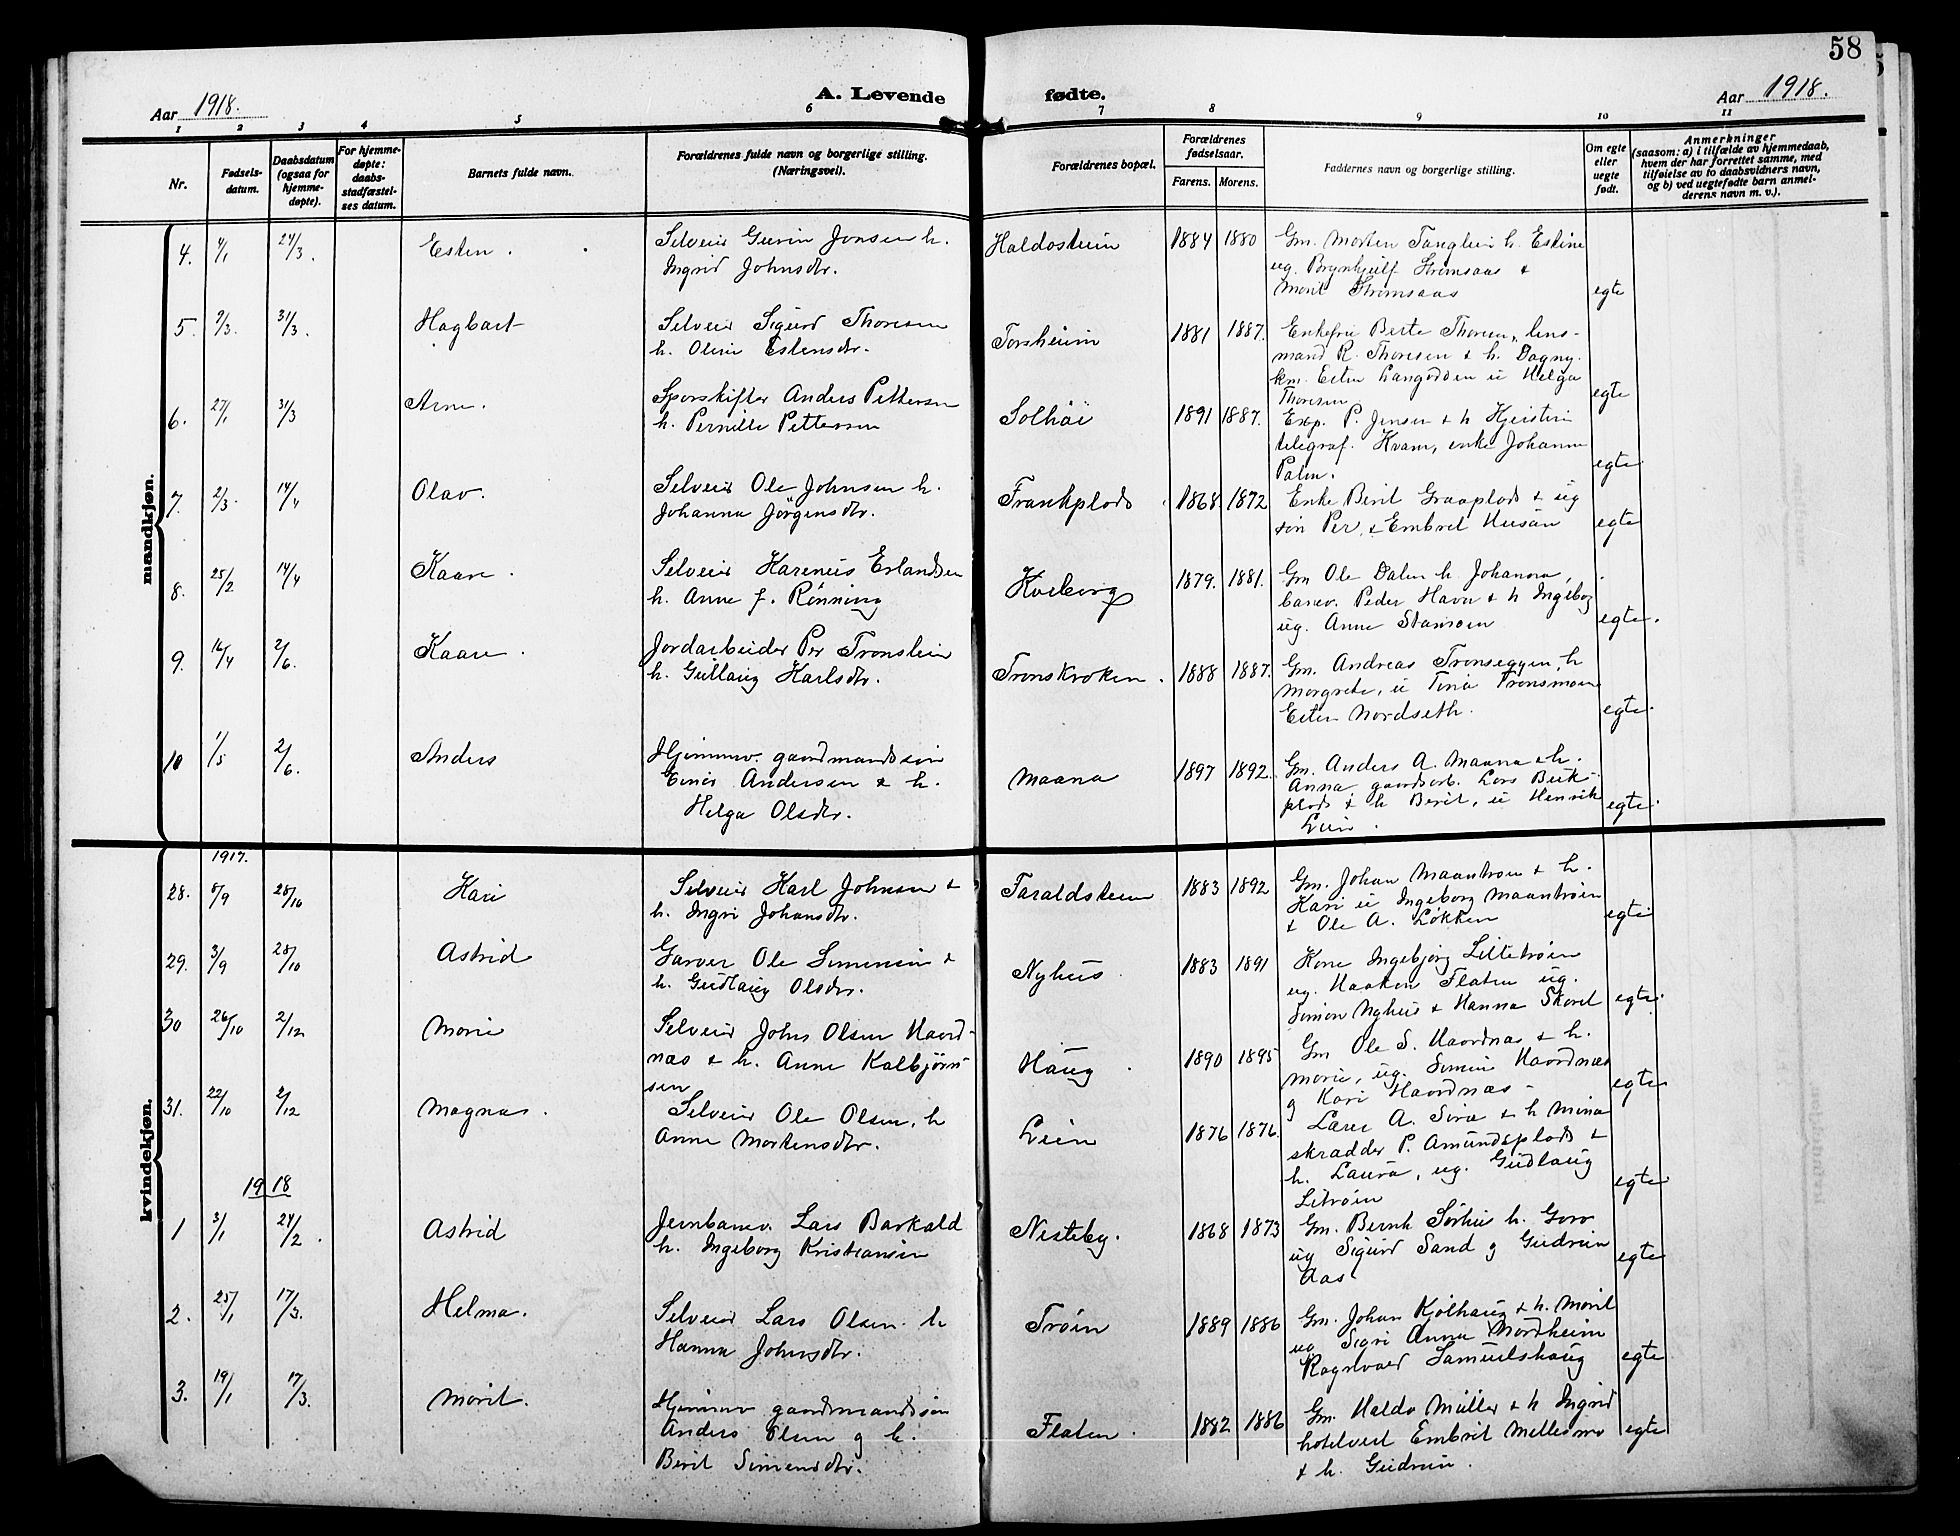 58
Aar 1918. A. Levende fødte. Aar 1918.
1 2 3 4 5 6 7 8 9 10 11
Nr.
Fødsels-
datum.
Daabsdatum
(ogsaa for
hjemme-
døpte).
For hjemme-
døpte:
daabs-
stadfæstel-
ses datum.
Barnets fulde navn.
Forældrenes fulde navn og borgerlige stilling.
(Næringsvei).
Forældrenes bopæl.
Forældrenes
fødselsaar.
Farens. Morens.
Faddernes navn og borgerlige stilling.
Om egte
eller
uegte
født.
Anmerkninger
(saasom: a) i tilfælde av hjemmedaab,
hvem der har forrettet samme, med
tilføielse av to daabsvidners navn,
og b) ved uegtefødte barn anmel-
derens navn m. v.).
mandkjøn.
4. 4/1 24/3. Esten.
Selveier Jonsen h.
Ingrid Johnsdtr.
1884 1880
Gm. Morten h. Estine
ug. Brynhjulf Strømsaas &
Marit Strømsaas
egte
5. 9/3. 31/3. Hagbart
Selveier Sigurd Thoresen
h. Oline Estensdtr.
Torsheim 1881 1887.
Enkefru Berte Thoresen, lens-
mand R. Thoresen & h. Dagny.
km. Esten Langodden u Helga
Thoresen
egte
6. 27/1 31/3 Arne.
Sporskifter Anders Pettersen
h. Pernille Pettersen
Solhöi 1891 1887.
Exp. P. Jensen & h Kjerstin
telegraf. Kvam, enke Johanna
Palm.
egte
7. 2/3. 14/4 Olav.
Selveier Ole Johnsen h.
Johanna Jörgensdtr.
Trankplads 1868. 1872
Enke Berit Graaplads & ug
sön Per, & Embret
egte
8. 25/2 14/4 Kaare.
Selveier Karenius Erlandsen
h. Anne f. Rönning
Kveberg 1879. 1881.
Gm Ole Dalen h Johanna,
banev. Peder Havn & h Ingeborg
ug. Anne
egte.
9. 16/4 2/6. Kaare.
Jordarbeider Per Tronslien
h. Gullaug Karlsdtr.
Tronskroken. 1888 1887.
Gm. Andreas Tronseggen, h
Margrete, u Tina Tronsmoen
Esten Nordseth.
egte.
10 1/5 2/6. Anders
Hjemmev. gaardmandssön
Einar Andersen & h.
Helga Olsdtr.
Maana 1897 1892.
Gm. Anders A. Maana & h.
Anna gaardsarb. Lars
plads & h Berit, u Henrik
Lien.
egte.
kvindekjøn.
1917.
28. 8/9 28/10 Kari
Selveier Karl Johnsen &
h. Ingri Johansdtr.
Taraldsteen 1883 1892
Gm. Johan Maantrøen & h.
Kari u Ingeborg Maantrøen
& Ole A. Løkken
egte
29. 3/9 28/10 Astrid
Garver Ole Simensen &
h. Gudlaug Olsdtr.
Nyhus. 1883 1891
Kone Ingebjørg Litletrøen
ug. Haaken Flaten ug.
Simon Nyhus & Hanna
egte.
30 26/10 2/12 Marie
Selveier Johs Olsen Haard-
næs & h. Anne Kolbjørn-
sen
Haug. 1890 1895
Gm Ole S. Haardnæs & h.
Marie, ug. Simen Haardnæs
g Kari Haardnæs -
egte
31. 22/10 2/12 Magna.
Selveier Ole Olsen, h
Anne Mortensdtr.
Lien 1876 1876.
Lærer A. & h Mina
skrædder P. Amundsplads &
h. Laura, ug. Gudlaug
Litrøen
egte
1918
1 3/1 24/2. Astrid
Jernbanev. Lars Barkald
h. Ingeborg Kristiansen
Nesteby. 1868 1873
Gm. Bernh Sørhus h. Goro
ug Sigurd Sand g Gudrun
Aas
egte
2. 25/1 17/3. Helma.
Selveier Lars Olsen. h
Hanna Johnsdtr.
Trøen 1889 1886
Gm. Johan Kjølhaug & h. Marit
ug Sigri Anna Nordheim
Ragnvald Samuelshaug
egte
3. 19/1 17/3. Marit.
Hjemmev gaardmandssøn
Anders Olsen g h.
Berit Simensdtr.
Flaten. 1882 1886
Gm. Haldo Müller & h Ingrid
hotelvert Embret Mellesmo
& h. Gudrun.
egte